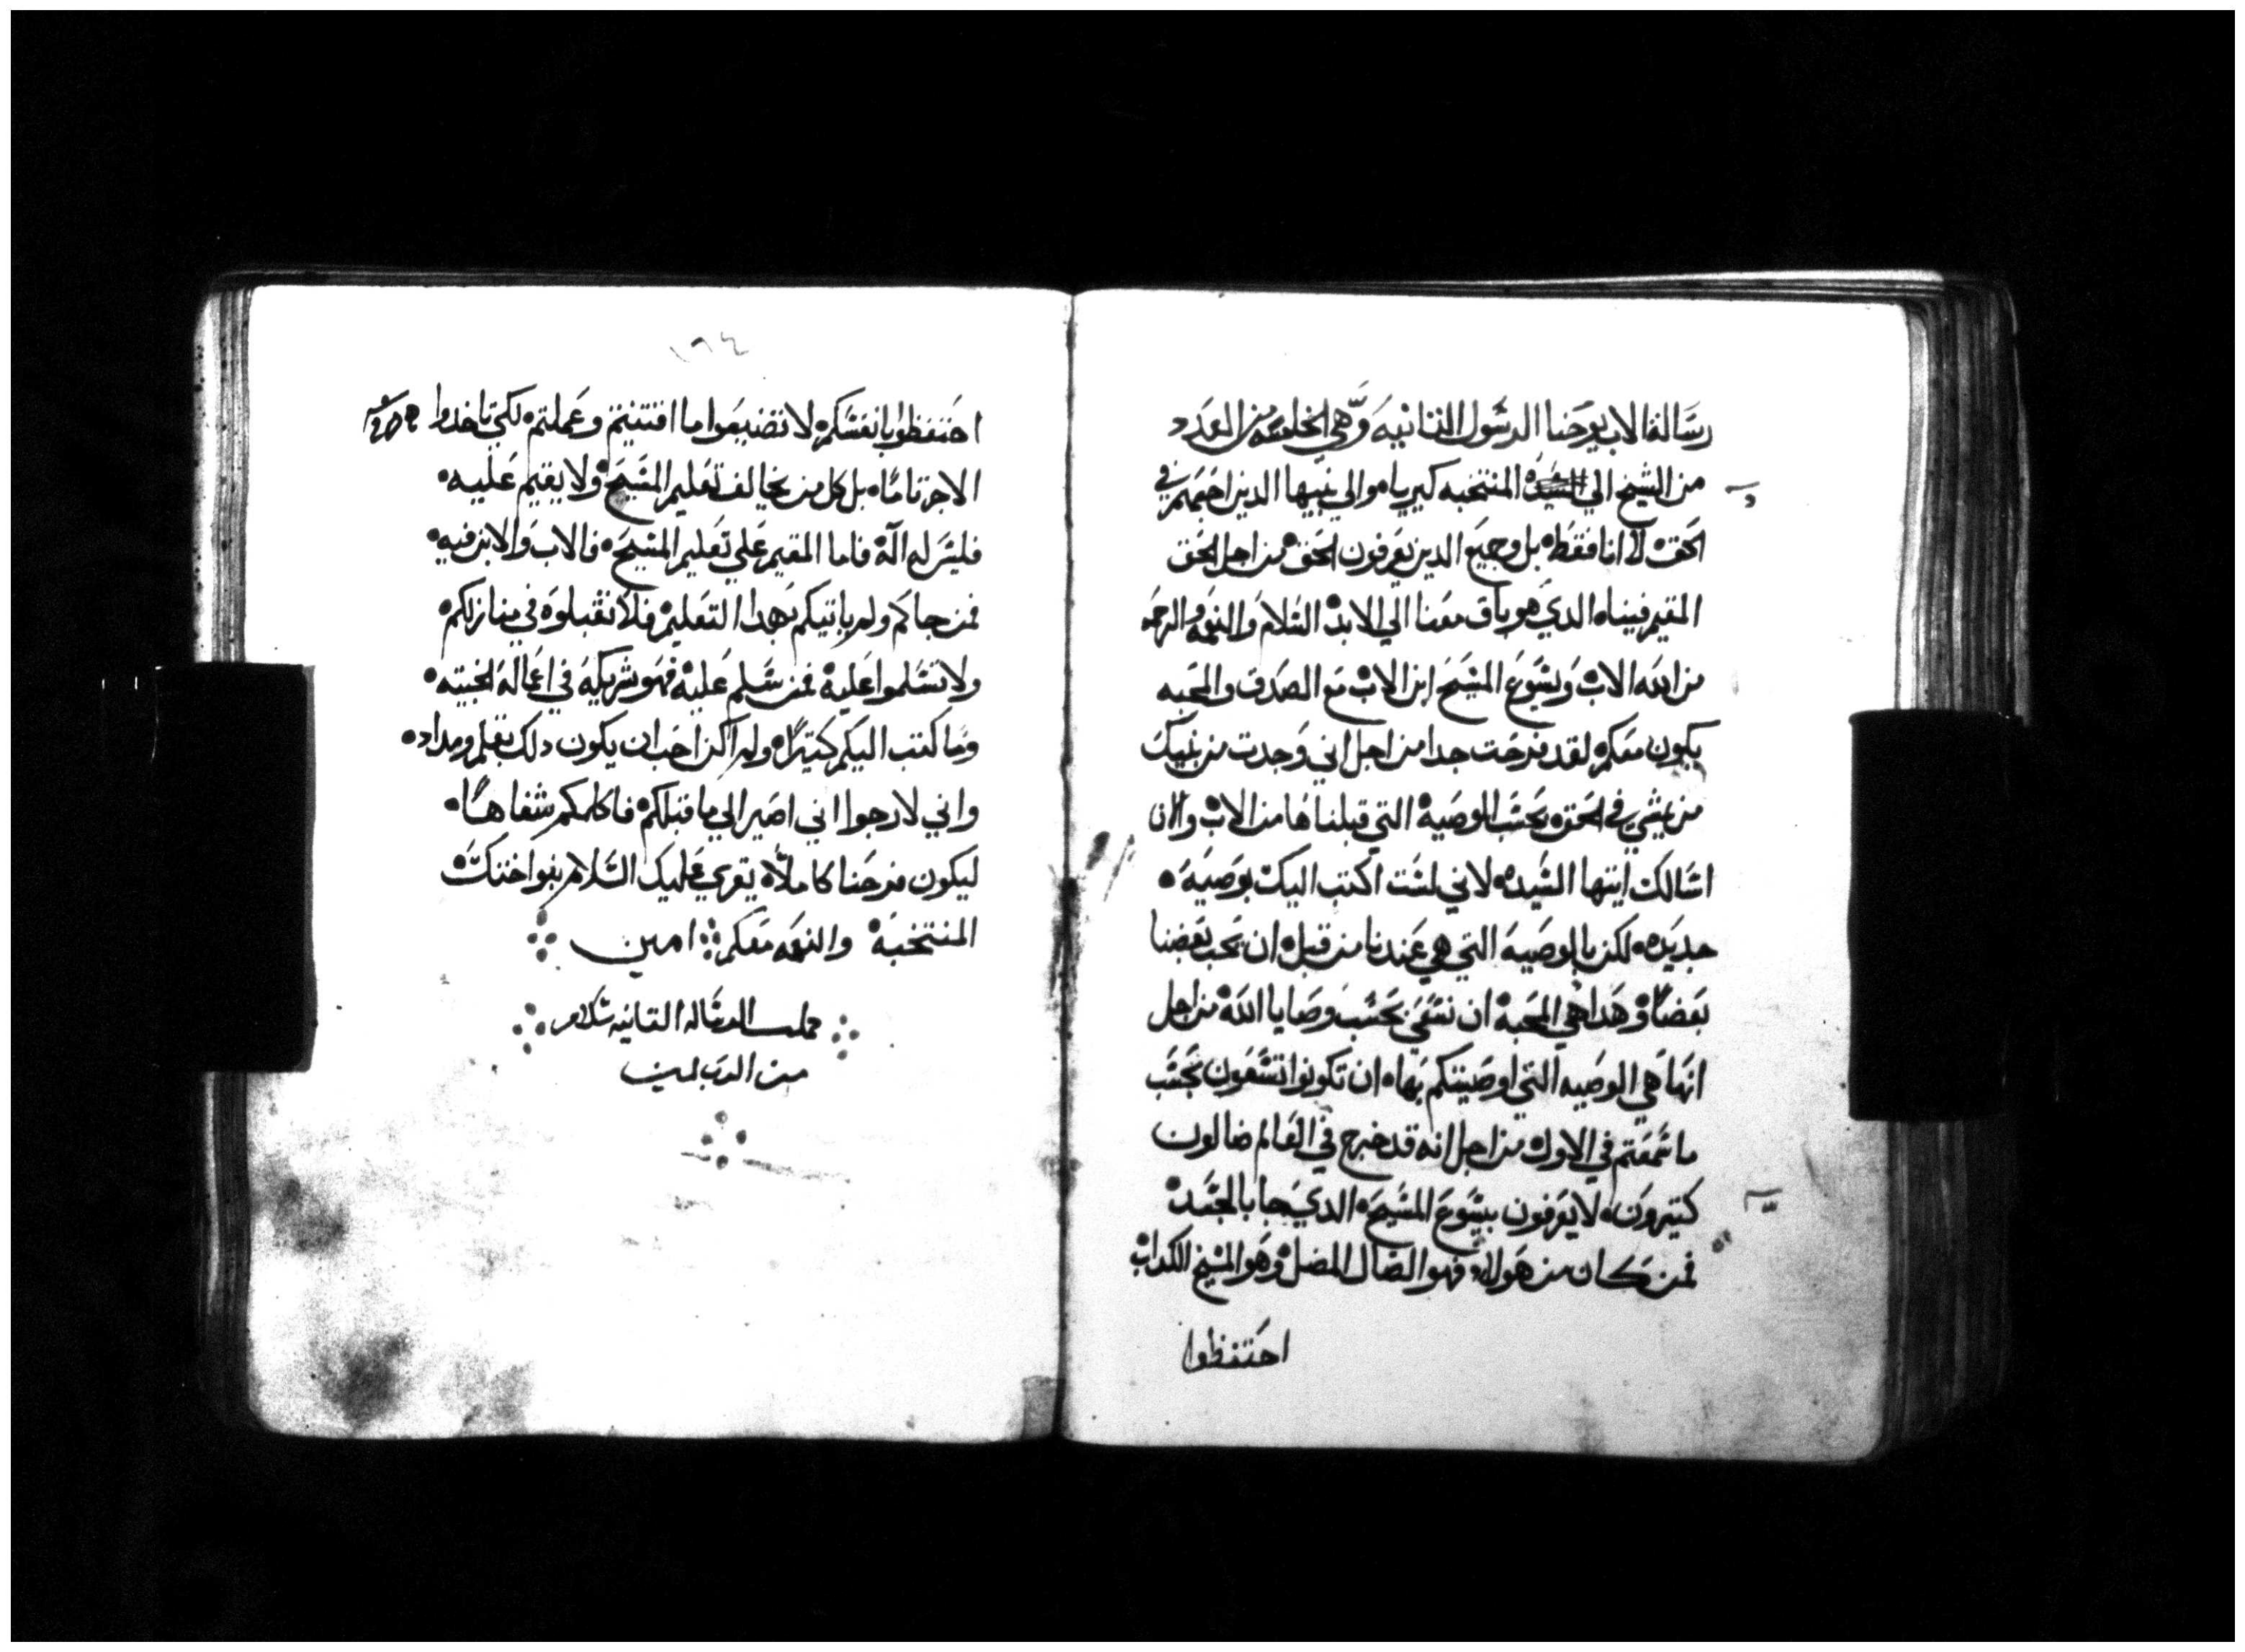 رسالة الاب يوحنا الرسول الثانيه وهي الخامسه من العدد
من الشيخ الي السيده المنتخبه كيرياه والي بنيها الدين احبهم في
الحق لا انا فقط بل وجميع الدين يعرفون الحق من اجل الحق
المقيم فيناه الدي هو باق معنا الي الابد السلام والنعمه والرحمه
من الله الاب ويسوع المسيح ابن الاب مع الصدق والمحبه
يكون معكم لقد فرحت جدا من اجل اني وجدت من بنيك
من يمشي في الحق بحسب الوصيه التي قبلناها من الاب والان
اسالك ايتها السيده لاني لست اكتب اليك بوصيه
جديده لكن بالوصيه التي هي عندنا من قبل ان يحب بعضنا
بعضا وهدا هي المحبه ان نسعي بحسب وصايا الله من اجل
انها هي الوصيه التي اوصيتكم بها ان تكونوا تسعون بحسب
ما سمعتم في الاول من اجل انه قد خرج في العالم ضالون
كتيرون لا يعرفون بيسوع المسيح الدي جا بالجسد
فمن كان من هولاء فهو الضال المضل وهو المسيح الكداب
احتفظوا
١٦٤
احتفظوا بانفسكم لا تضيعوا ما اقتنيتم وعملتم لكي تاخدوا
الاجر تاما بل كل من يخالف تعليم المسيح ولا يقيم عليه
فليس له اله فاما المقيم علي تعليم المسيح فالاب والابن فيه
فمن جاكم ولم ياتيكم بهدا التعليم فلا تقبلوه في منازلكم
ولا تسلموا عليه فمن سلم عليه فهو شريكه في اعماله الخبيته
وما كتب اليكم كتيرا ولم اكن احب ان يكون دلك بقلم ومداد
واني لارجوا اني اصير الي ما قبلكم فاكلمكم شفاها
ليكون فرحنا كاملا يقري عليك السلام بنوا اختك
المنتخبه والنعمه معكم امين
كملت الرساله التانيه سلام
من الرب امين